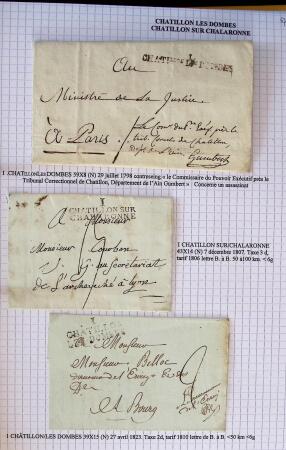 CHATILLON LES DOMBES
CHATILLON SUR CHALARONNE
1
CHATILLON LES DOMBES
Au
Ministre de la Justice
à Paris
Gumbert
1 .CHATILLON/LES DOMBES 39X8 (N) 29 juillet 1798 contreseing « le Commissaire du Pouvoir Exécutif près le
Tribunal Correctionnel de Chatillon, Département de l'Ain Gumbert » Concerne un assassinat
1
CHATILLON SUR
CHALARONNE
A Monsieur
Monsieur Courbon
V. G. au Secrétariat
de l'archevêché à Lyon
1 CHATILLON SUR/CHALARONNE
43X16 (N) 7 décembre 1807. Taxe 3 d.
tarif 1806 lettre B. à B. 50 à100 km. < 6g
1
CHATILLON
LES DOMBES
A Monsieur
Monsieur Belloc
A Bourg
1 CHÂTILLON/LES DOMBES 39X15 (N) 27 avril 1823. Taxe 2d, tarif 1810 lettre de B. à B. <50 km <6g